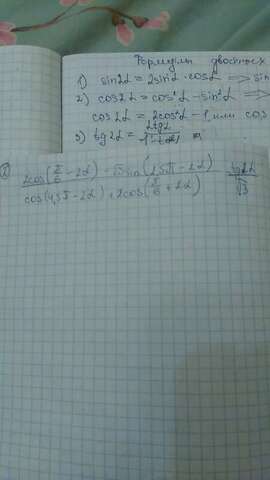 Формулы двойных
1) sin2α = 2sinα·cosα => sin
2) cos2α = cos²α - sin²α =>
cos2α = 2cos²α - 1, или cos
3) tg2α = 2tgα
2cos(π/6 - 2α) - √3 sin(2,5π - 2α) / cos(4,5π - 2α) + 2cos(π/6 + 2α) tg2α/√3